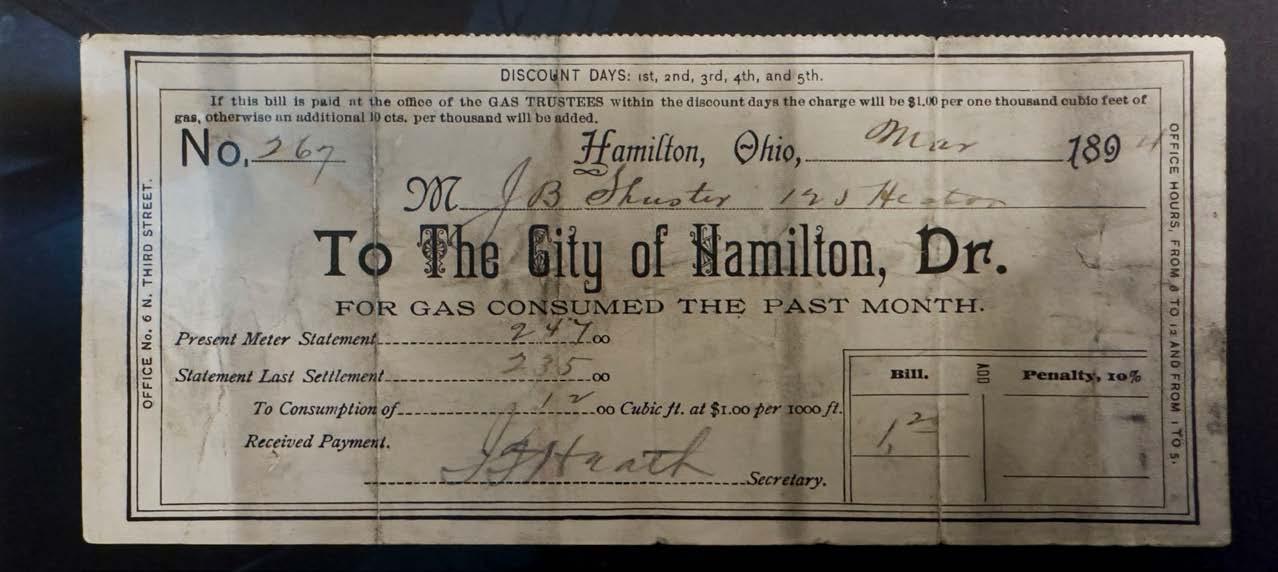 DISCOUNT DAYS: 1st, 2nd, 3rd, 4th, and 5th.
If this bill is paid at the office of the GAS TRUSTEES within the discount days the charge will be $1.00 per one thousand cubic feet of
gas, otherwise an additional 10 cts. per thousand will be added.
No. 267 Hamilton, Ohio, Mar 1894
M J B Shuster
To The City of Hamilton, Dr.
FOR GAS CONSUMED THE PAST MONTH.
Present Meter Statement 247.00
Statement Last Settlement 235.00
To Consumption of 12.00 Cubic ft. at $1.00 per 1000 ft.
Received Payment.
Secretary.
Bill. ADD Penalty, 10%
1,2
OFFICE No. 6 N. THIRD STREET.
OFFICE HOURS, FROM 8 TO 12 AND FROM 1 TO 5.